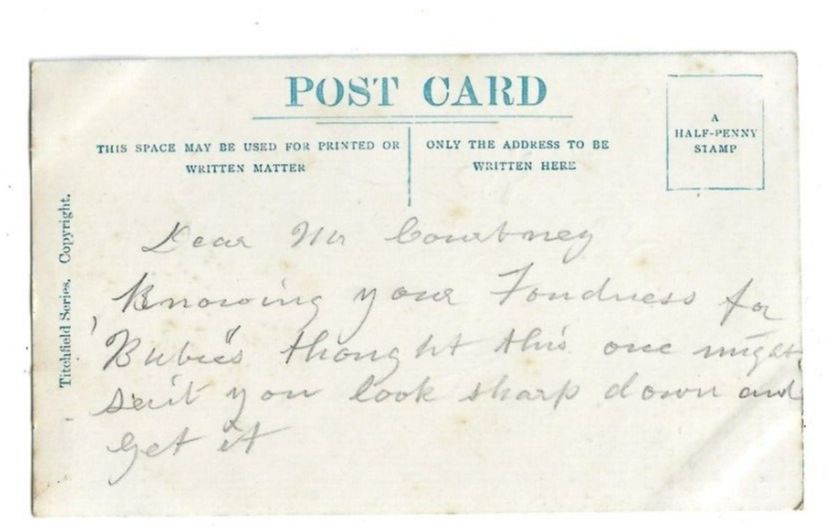 POST CARD
THIS SPACE MAY BE USED FOR PRINTED OR
WRITTEN MATTER
ONLY THE ADDRESS TO BE
WRITTEN HERE
A
HALF-PENNY
STAMP
Titchfield Series. Copyright.
Dear Mr Courtney
Knowing your Fondness for
"Bubies" thought this one might
suit you look sharp down and
get it